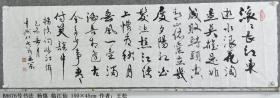 滚滚长江東
逝水浪花淘
尽英雄是非
成败转头空
青山依旧在
几度夕陽红
白髮渔樵江渚
上惯看秋月
春風一壶浊
酒喜相逢古
今多少事都
付笑谈中
杨慎临江仙
B8076号书法 杨慎 临江仙 180×48cm 作者：王松